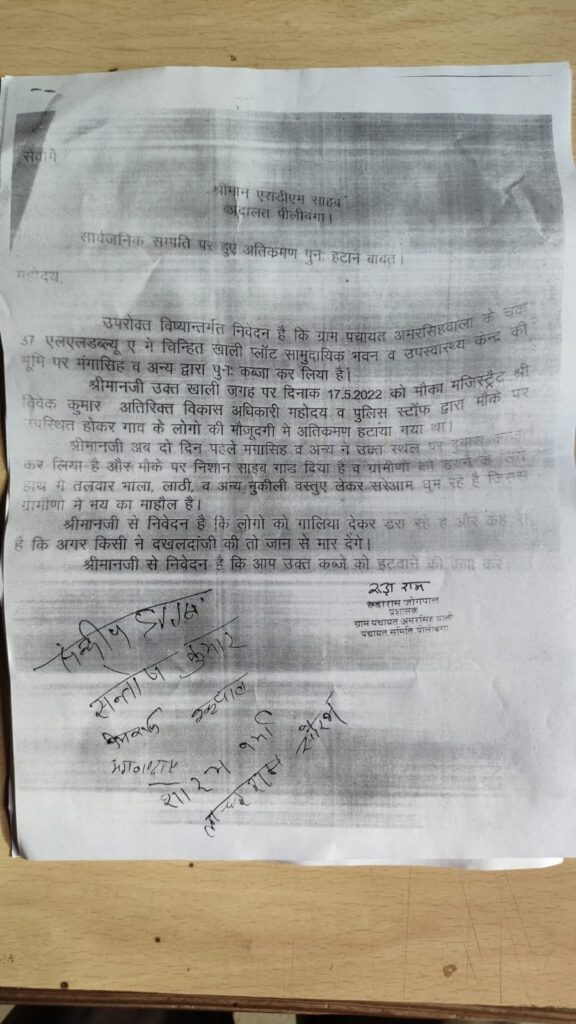 सेवामें
श्रीमान एसडीएम साहब
अदालत पीलीबंगा।
सार्वजनिक सम्पति पर हुए अतिकमण पुनः हटाने बाबत।
महोदय,
उपरोक्त विष्यान्तर्गत निवेदन है कि ग्राम पंचायत अमरसिहवाला के चक
37 एलएलडब्ल्यू ए मे चिन्हित खाली प्लॉट सामुदायिक भवन व उपस्वास्थ्य केन्द्र की
भूमि पर मंगासिह व अन्य द्वारा पुनः कब्जा कर लिया है।
श्रीमानजी उक्त खाली जगह पर दिनाक 17.5.2022 को मौका मजिस्ट्रैट श्री
विवेक कुमार अतिरिक्त विकास अधिकारी महोदय व पुलिस स्टॉफ द्वारा मोके पर
उपस्थित होकर गाव के लोगो की मौजूदगी मे अतिकमण हटाया गया था।
श्रीमानजी अब दो दिन पहले मंगासिह व अन्य ने उक्त स्थल पर दुबारा
कर लिया है और मोके पर निशान साहब गाड दिया है व ग्रामीणो को डराने के लिये
हाथ मे तलवार भाला, लाठी, व अन्य नुकीली वस्तुए लेकर सरेआम घुम रहे है जिससे
ग्रामीणो मे भय का माहौल है।
श्रीमानजी से निवेदन है कि लोगो को गालिया देकर डरा रहे है और कह रहे
है कि अगर किसी ने दखलदांजी की तो जान से मार देंगे।
श्रीमानजी से निवेदन है कि आप उक्त कब्जे को हटवाने की कृपा करे
राम
जोगपाल
प्रशासक
ग्राम पंचायत अमरसिंह वाली
पंचायत समिति पीलीबंगा
सन्तोष कुमार
शोरभ वर्मा